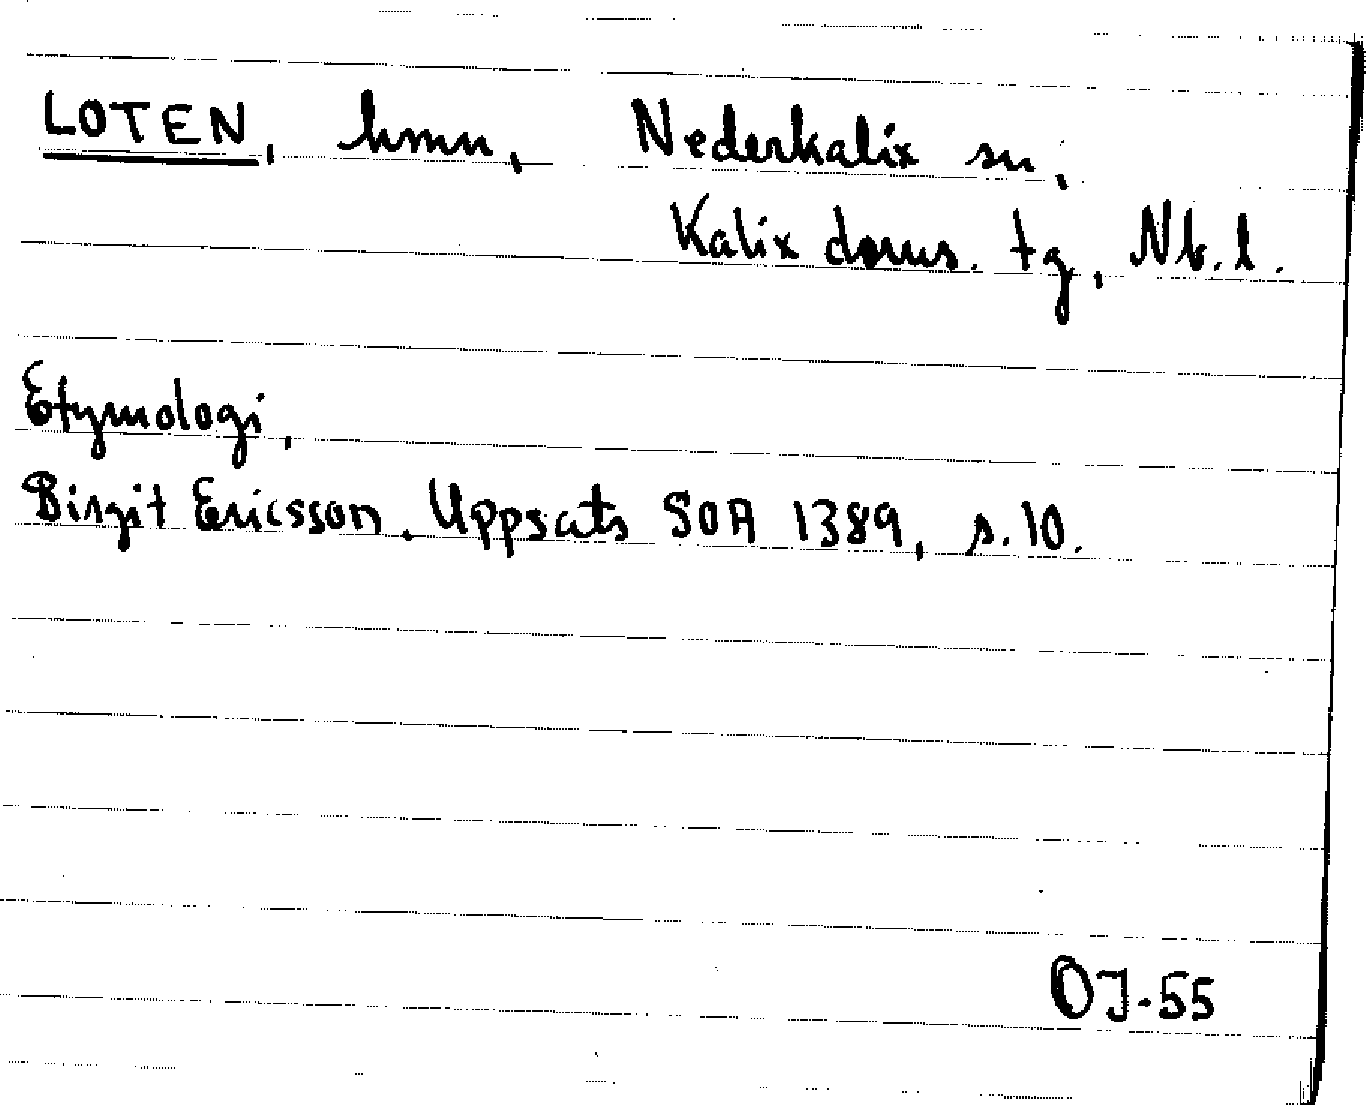 LOTEN, hmn, Nederkalix sn,
Kalix doms. tg, Nb. l.
Etymologi,
Birgit Ericsson. Uppsats SOA 1389, s. 10.
OJ-55